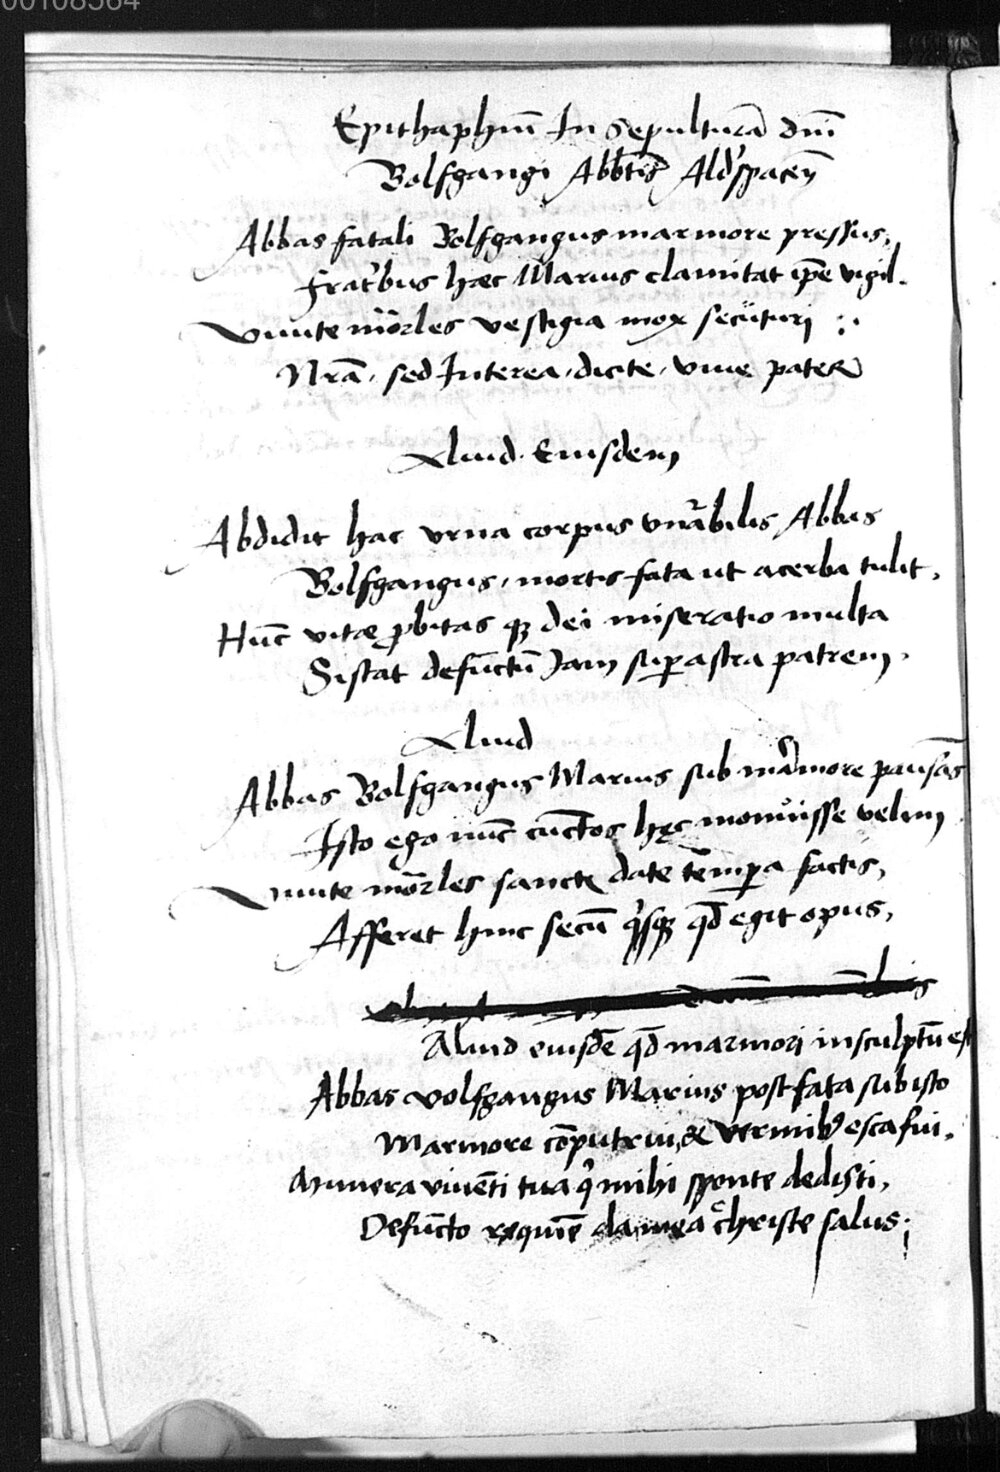 00108564
Epithaphiū In Sepulturā dnī
Bolfgangi Abbtis Aldspacen̄
Abbas fatali Bolfgangus marmore pressus,
Fratribus hæc Marius clamitat ip̄e vigil.
Viuite mōrles vestigia mox secuturi
Nrā, sed Interea, dicite, viue pater
Aliud Eiusdem
Abdidit hac vrna corpus vnābilis Abbas
Bolfgangus, mortis fata ut acerba tulit,
Hūc vitæ ꝓbitas qꝫ dei miseratio multa
Sistat defūctū Iam suꝑ astra patrem.
Aliud
Abbas Bolfgangus Marius sub marmore pausās
Isto ego nūc cūctos hęc monuisse velim
Viuite mōrles sancte date tēmꝑa factis,
Afferet hinc secū qͥsqꝫ qd̄ egit opus,
Aliud eiusdē qd̄ marmori insculptū est
Abbas volfgangus Marius post fata sub isto
Marmore cōputrui, & vermibꝰ esca fui.
Munera viuēti tua qͥ mihi sponte dedisti,
Defūcto requiē da mea christe salus